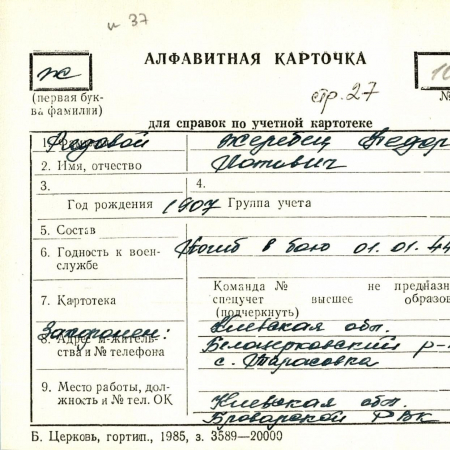 и 37
АЛФАВИТНАЯ КАРТОЧКА
ж
(первая бук-
ва фамилии)
стр. 27
№
для справок по учетной картотеке
Рядовой Жеребец Федор
2. Имя, отчество
3. 4.
Год рождения 1907 Группа учета
5. Состав
6. Годность к воен-
службе
Погиб в бою 01.01.44
7. Картотека
Команда № не предназн
спецучет высшее образов
(подчеркнуть)
Захоронен: Киевская обл.
8. Адрес м-житель-
ства и № телефона
Белоцерковский р-
с. Тарасовка
9. Место работы, дол-
жность и № тел. ОК
Киевская обл.
Броварской РВК
Б. Церковь, гортип., 1985, з. 3589—20000